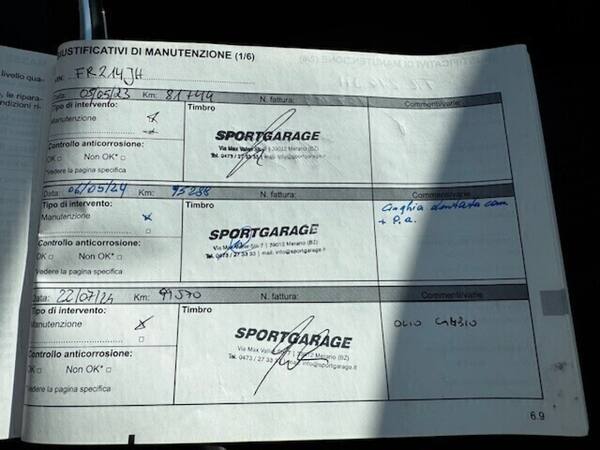 GIUSTIFICATIVI DI MANUTENZIONE (1/6)
FR214JH
Data: 03/05/23 Km: 81744 N. fattura: Commenti/varie:
Tipo di intervento: Timbro
Manutenzione
SPORTGARAGE
Via Max Valier Str. 7 | 39012 Merano (BZ)
Tel. 0473 / 27 33 33 | mail: info@sportgarage.it
Controllo anticorrosione:
OK □ Non OK* □
*Vedere la pagina specifica
Data: 06/05/24 Km: 95288 N. fattura: Commenti/varie:
Tipo di intervento: Timbro
Manutenzione
cinghia dentata com
+ P.a.
SPORTGARAGE
Via Max Valier-Str. 7 | 39012 Merano (BZ)
Tel. 0473 / 27 33 33 | mail: info@sportgarage.it
Controllo anticorrosione:
OK □ Non OK* □
*Vedere la pagina specifica
Data: 22/07/24 Km: 99570 N. fattura: Commenti/varie:
Tipo di intervento: Timbro
Manutenzione
OLIO CAMBIO
SPORTGARAGE
Via Max Valier 7 | 39012 Merano (BZ)
Tel. 0473 / 27 33 info@sportgarage.it
Controllo anticorrosione:
OK □ Non OK* □
*Vedere la pagina specifica
6.9
livello qua-
le ripara-
ndizioni ri-